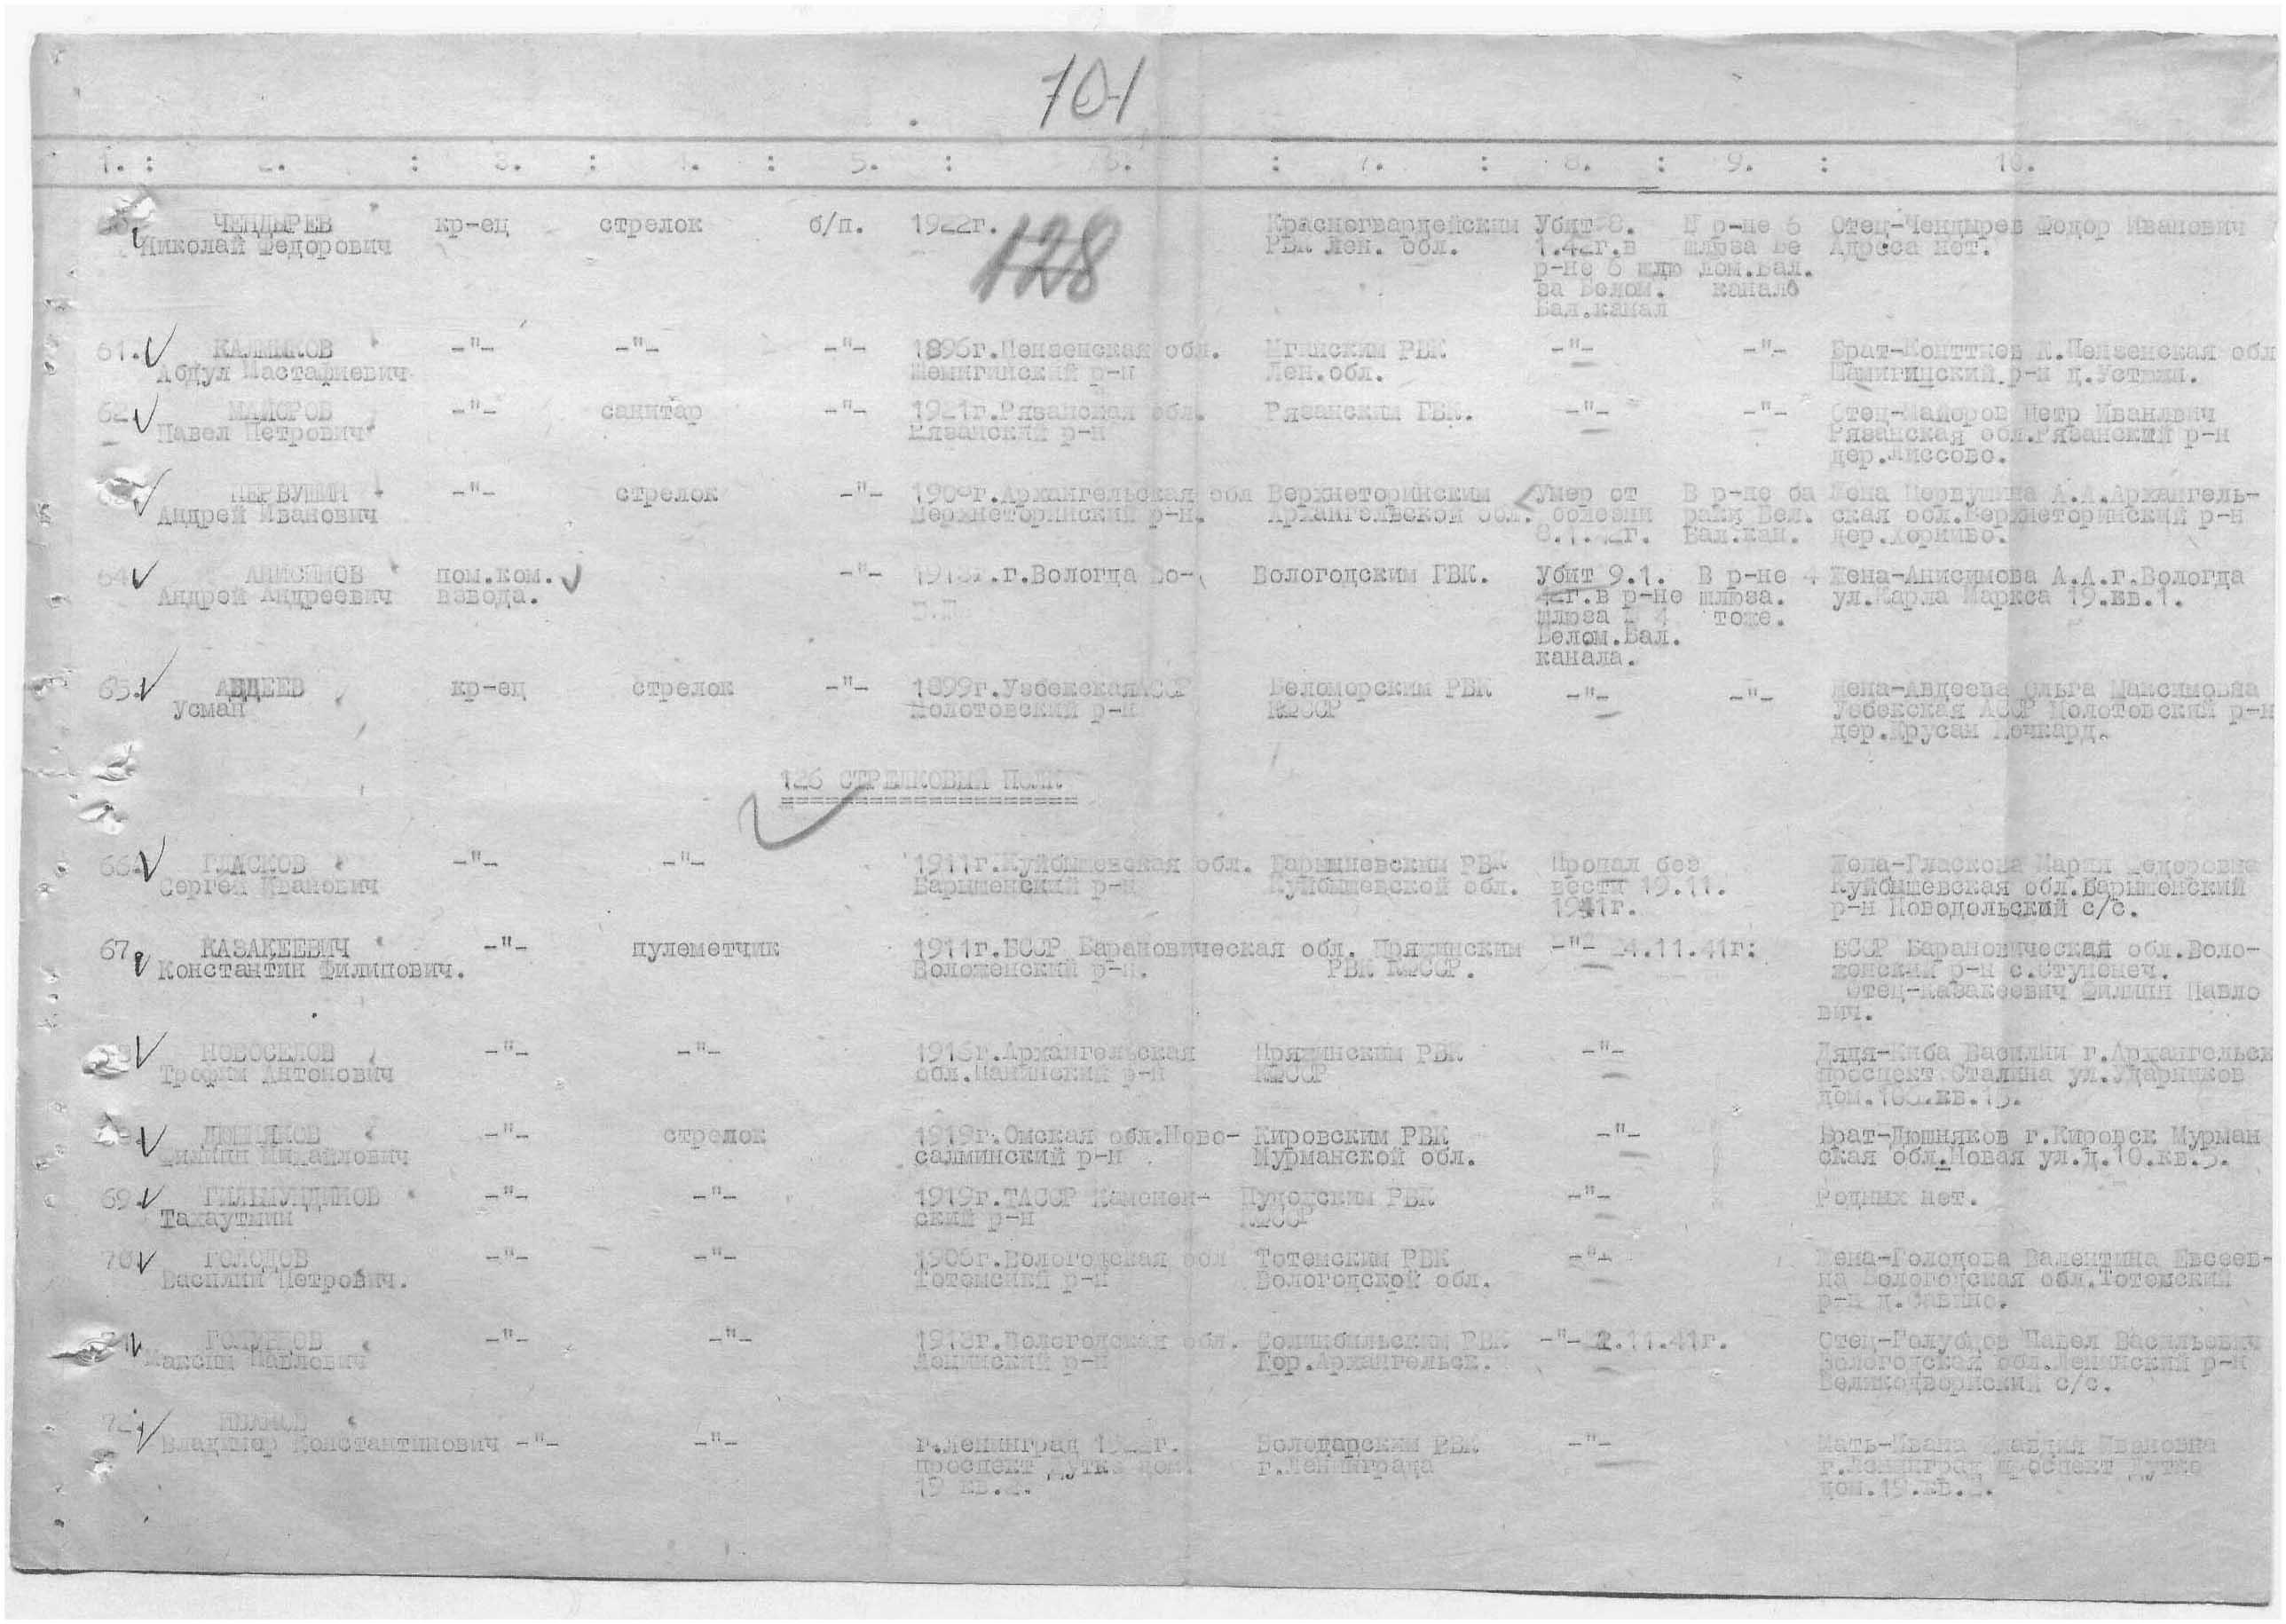 101
1. : 2. : 3. : 4. : 5. : 6. : 7. : 8. : 9. : 10.
ЧЕНДЫРЕВ кр-ец стрелок б/п. 1922г. Красногвардейским Убит 8. В р-не 6 Отец-Чендырев Федор Иванович
Николай Федорович РВК Лен. обл. 1.42г.в шлюза Бе Адреса нет.
128
р-не 6 шлю лом.Бал.
за Белом. канала
Бал.канал
61. КАЛМЫКОВ -"- -"- -"- 1896г.Пензенская обл. Мгинским РВК -"- -"- Брат- Пензенская обл
Абдул Мастафиевич Шемыгинский р-н Лен.обл. р-н д.
62 МАЙОРОВ -"- санитар -"- 1921г.Рязанская обл. Рязанским ГВК. -"- -"- Отец-Майоров Петр Иванович
Павел Петрович Рязанский р-н Рязанская обл.Рязанский р-н
дер.
ПЕРВУШИН -"- стрелок -"- Архангельская обл Верхнеторинским Умер от В р-не ба Жена Первушина А.А.Архангель-
Андрей Иванович Верхнеторинский р-н. Архангельской обл. болезни раки Бел. ская обл.Верхнеторинский р-н
8.1.42г. Бал.кан. дер.
64 АНИСИМОВ пом.ком. -"- г.Вологда Вологодским ГВК. Убит 9.1. В р-не 4 Жена-Анисимова А.А.г.Вологда
Андрей Андреевич взвода. 42г.в р-не шлюза. ул.Карла Маркса 19.кв.1.
шлюза 4 тоже.
Белом.Бал.
канала.
65. АВДЕЕВ кр-ец стрелок -"- 1899г.Узбекская АССР Беломорским РВК -"- -"- Жена-Авдеева Ольга Максимовна
Усман Молотовский р-н КФССР Узбекская АССР Молотовский р-н
дер.
126 СТРЕЛКОВЫЙ ПОЛК
66. ГЛАСКОВ -"- -"- 1911г.Куйбышевская обл. Барышневским РВК Пропал без Жена-Гласкова Мария Федоровна
Сергей Иванович Барышенский р-н Куйбышевской обл. вести 19.11. Куйбышевская обл.Барышенский
1941г. р-н Новодольский с/с.
67. КАЗАКЕЕВИЧ -"- пулеметчик 1911г.БССР Барановическая обл. Пряжинским -"- 24.11.41г. БССР Барановическая обл.Воло-
Константин Филипович. Воложенский р-н. РВК КФССР. женский р-н с.Ступенеч.
Отец-Казакеевич Филипп Павло
вич.
НОВОСЕЛОВ -"- -"- 1916г.Архангельская Пряжинским РВК -"- Дядя- Василий г.Архангельск
Трофим Антонович обл. р-н КФССР проспект Сталина ул.Ударников
дом. кв.
ДЮШНЯКОВ -"- стрелок 1919г.Омская обл.Ново- Кировским РВК -"- Брат-Дюшняков г.Кировск Мурман
Филипп Михайлович салминский р-н Мурманской обл. ская обл.Новая ул.д.10.кв.3.
69. ГИЛЬМУНДИНОВ -"- -"- 1919г.ТАССР Каменен- Пудожским РВК -"- Родных нет.
Тахаутдин ский р-н КФССР
70. ГОЛОДОВ -"- -"- 1906г.Вологодская обл Тотемским РВК -"- Жена-Голодова Валентина Евсеев-
Василий Петрович. Тотемский р-н Вологодской обл. на Вологодская обл.Тотемский
р-н д.Савино.
71 ГОЛУБЦОВ -"- -"- 1918г.Вологодская обл. Соломбальским РВК -"- .11.41г. Отец-Голубцов Павел Васильевич
Максим Павлович Ленинский р-н Гор.Архангельск. Вологодская обл.Ленинский р-н
Великодворский с/с.
72. ИВАНОВ
Владимир Константинович -"- -"- г.Ленинград Володарским РВК -"- Мать-Ивана Клавдия Ивановна
проспект дом. г.Ленинграда г.Ленинград проспект
19 кв. дом.19.кв.